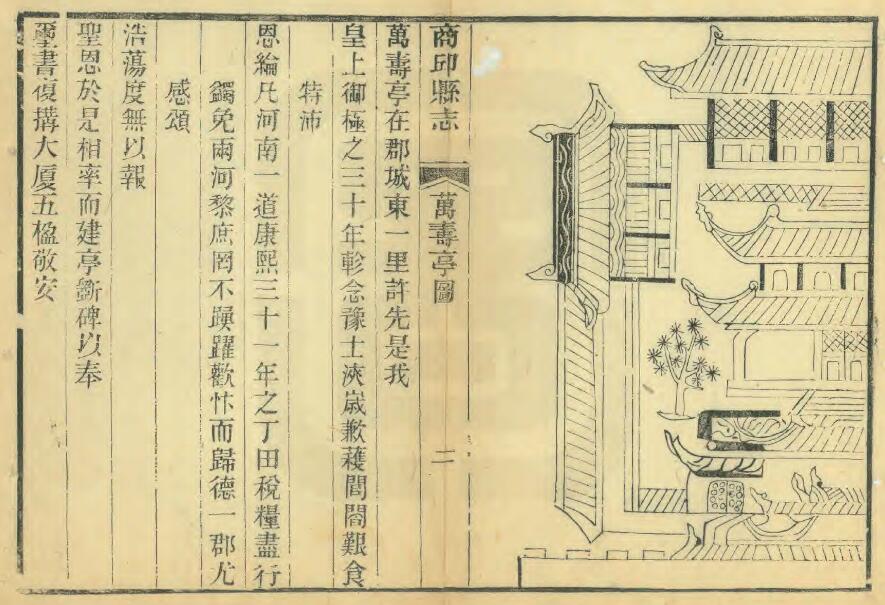 商邱縣志
萬壽亭圖
二
萬壽亭在郡城東一里許先是我
皇上御極之三十年軫念豫士浹歲歉穫閭閻艱食
特沛
恩綸凡河南一道康熙三十一年之丁田稅糧盡行
蠲免兩河黎庶罔不踴躍歡忭而歸德一郡尤
感頌
浩蕩度無以報
聖恩於是相率而建亭斵碑以奉
璽書復搆大厦五楹敬安